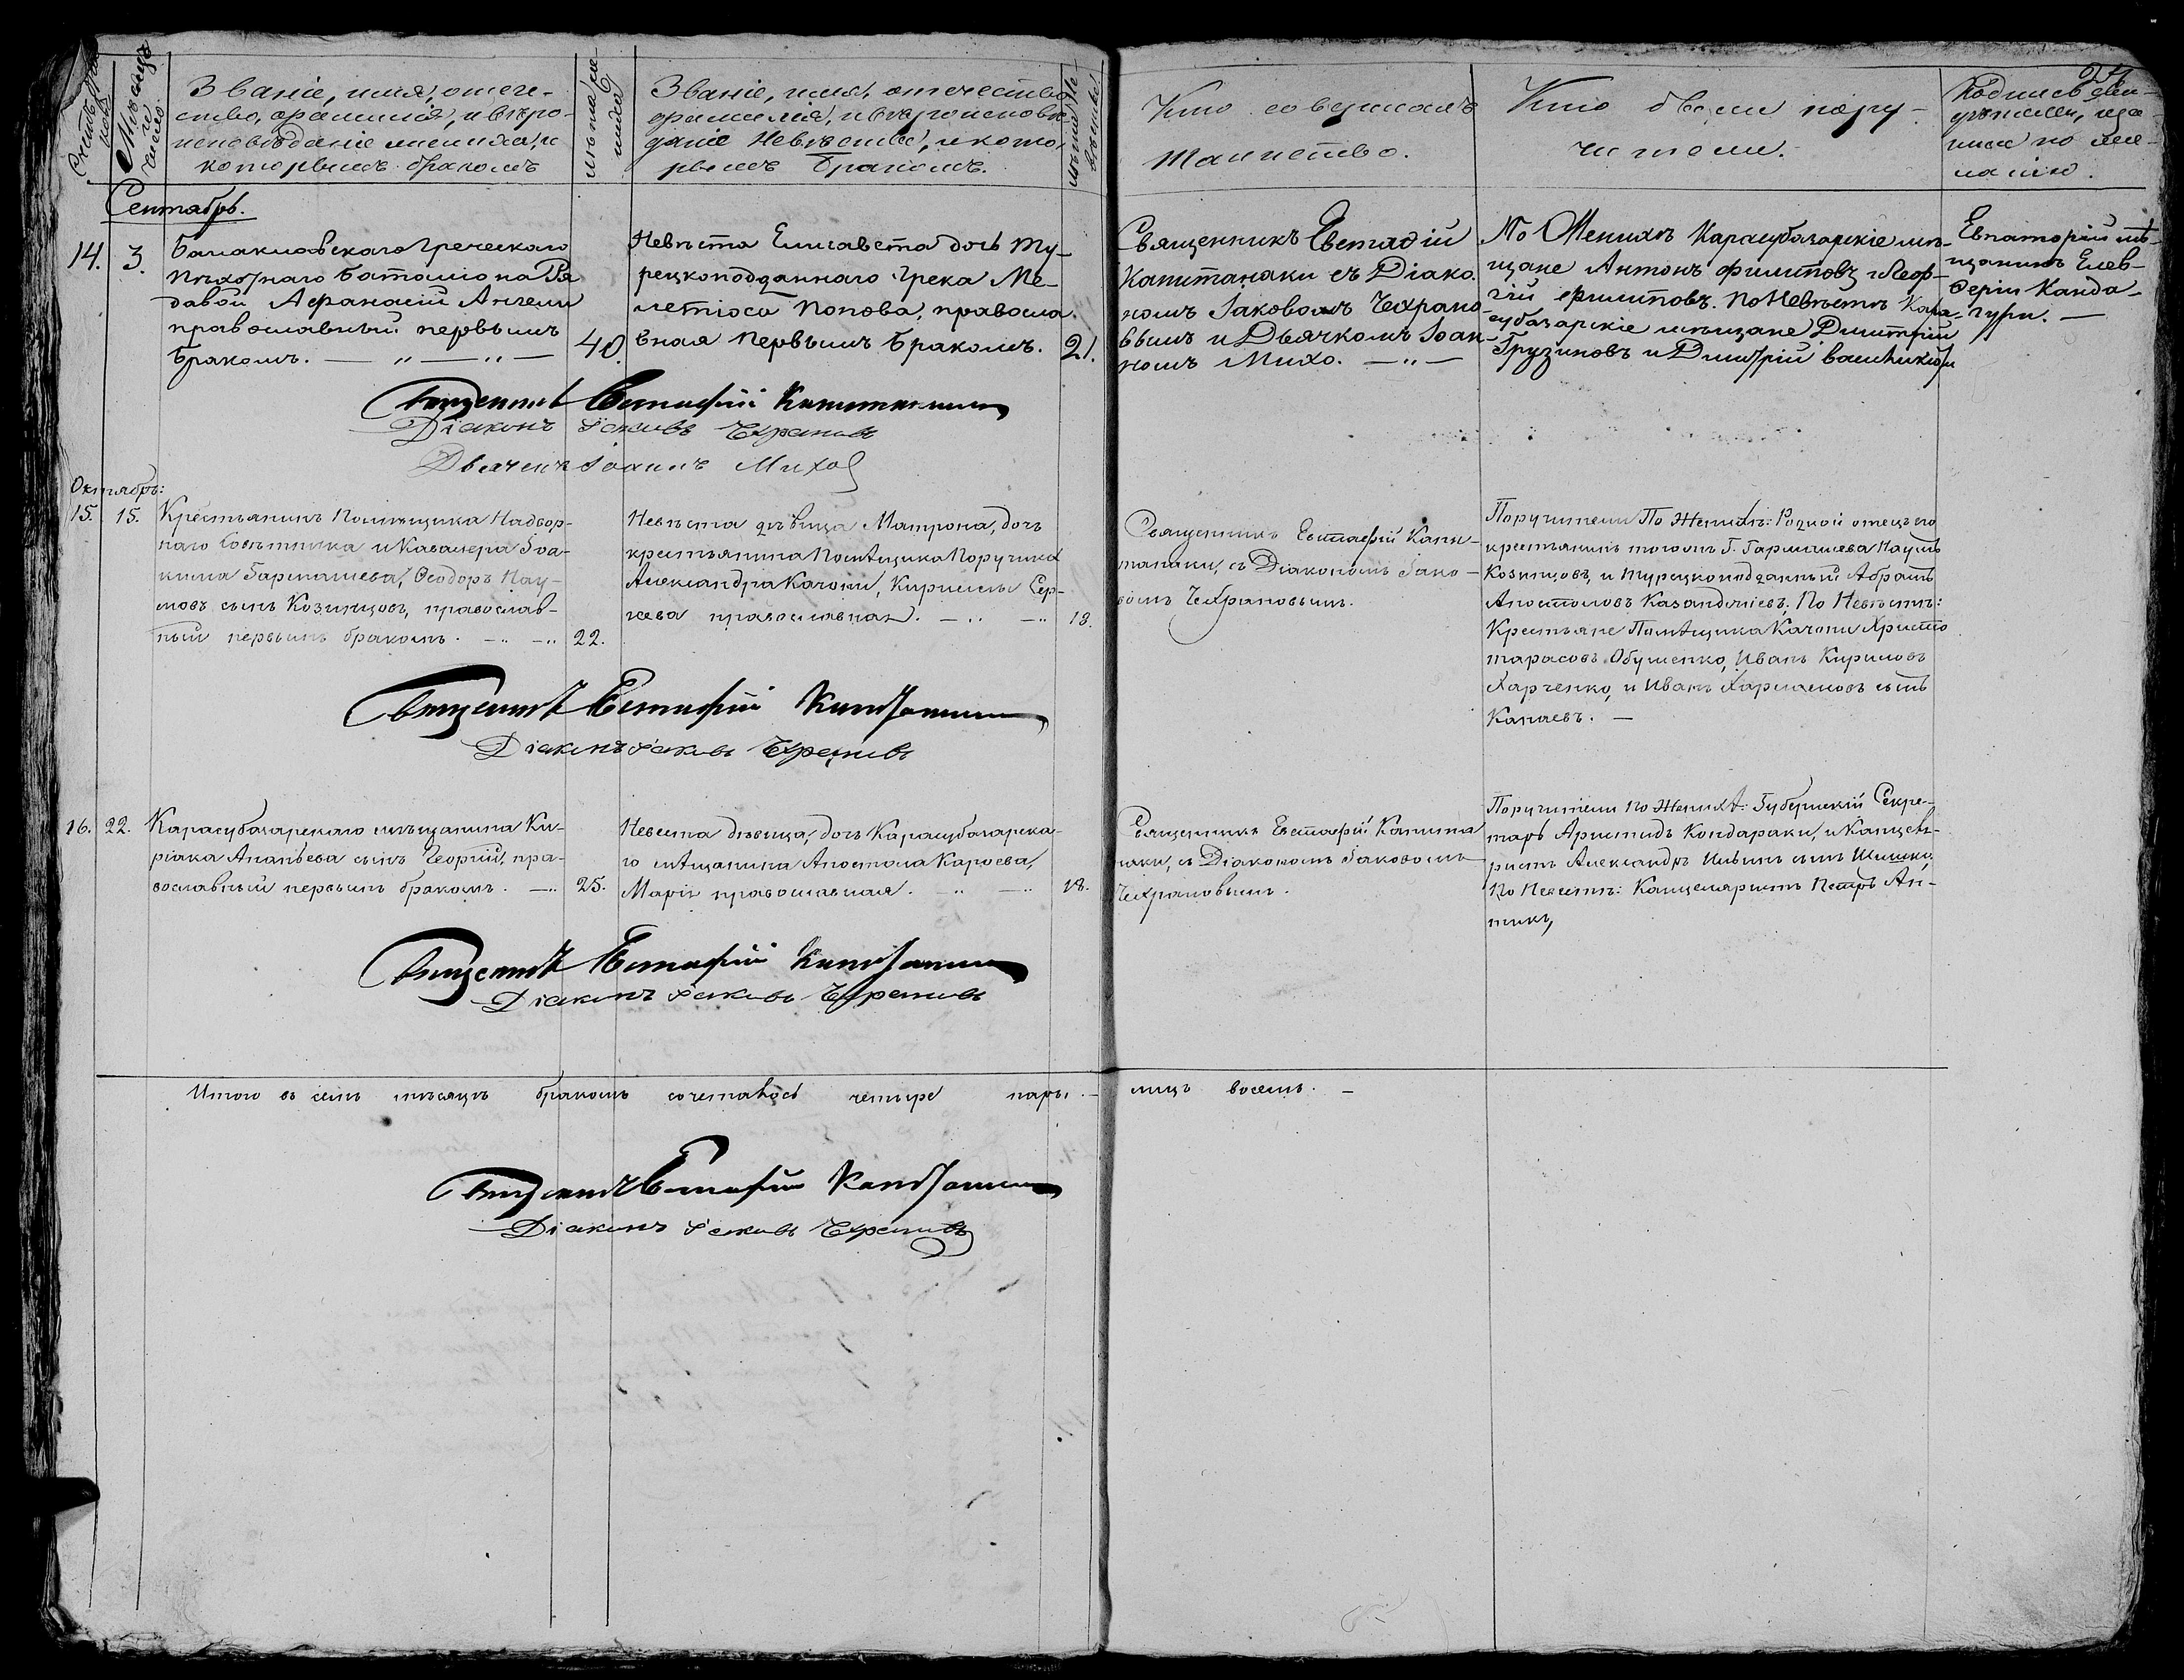 Счетъ браковъ
Мѣсяцъ и число
Званіе, имя, отече-
ство, фамилія, и вѣро-
исповѣданіе жениха, и
которымъ бракомъ
лѣта жениха
Званіе, имя, отечество
фамилія, и вѣроисповѣ
даніе Невѣсты, и кото
рымъ бракомъ.
лѣта Невѣсты
Кто совершалъ
таинство.
Кто были пору-
чители.
Сентябрь.
14. 3.
Балаклавскаго Греческаго
Пѣхотнаго баталіона Ря
давой Афанасій Ангели
православный первымъ
бракомъ. — „ — „ —
40.
Невѣста Елисавета дочь Ту-
рецкоподданнаго Грека Ме-
летіоса Попова, правосла.
вная первымъ бракомъ.
21.
Священникъ Евстафій
Капитанаки съ Діако.
номъ Іаковомъ Чехрано
вымъ и Дьячкомъ Іоан-
номъ Михо. — „ —
По Женихѣ Карасубазарскіе мѣ-
щане Антонъ Филиповъ и Геор-
гій Филиповъ. По Невѣстѣ Кара-
субазарскіе мѣщане Димитрій
Грузиновъ и Димитрій
Евпаторій мѣ-
щанинъ Елев-
ферій Канда-
гури. —
Священникъ Евстафій Капитанаки
Діаконъ Іаковъ Чехрановъ
Дьячекъ Іоаннъ Михо
Октябрь:
15. 15.
Крестьянинъ Помѣщика Надвор-
наго Совѣтника и Кавалера Іоа-
кима Гармашева, Ѳеодоръ Нау-
мовъ сынъ Козинцовъ, православ-
ный первымъ бракомъ. — „ — „
22.
Невѣста дѣвица Матрона, дочь
крестьянина Помѣщика Поручика
Александра Качони, Кирилы Сер-
геева православная. — „ — „
18.
Священникъ Евстафій Капи-
танаки, съ Діакономъ Іако-
вомъ Чехрановымъ.
Поручители По Женихѣ: Родной отецъ его
крестьянинъ тогожъ Г. Гармашева Наумъ
Козинцовъ, и Турецкоподданный Абрамъ
Апостоловъ Казанджіевъ; По Невѣстѣ:
Крестьяне Помѣщика Качони Христо
Тарасовъ Обушенко, Иванъ Кириловъ
Харченко, и Иванъ Харламовъ сынъ
Капаевъ. —
Священникъ Евстафій Капитанаки
Діаконъ Іаковъ Чехрановъ
16. 22.
Карасубазарскаго мѣщанина Ки-
ріака Ананьева сынъ Георгій, пра-
вославный первымъ бракомъ. — „
25.
Невеста дѣвица, дочь Карасубазарска-
го мѣщанина Апостола Кароева,
Марія православная. — „ — „
18.
Священникъ Евстафій Капита
наки, съ Діакономъ Іаковомъ
Чехрановымъ.
Поручители по Женихѣ: Губернскій Секре-
тарь Аристидъ Кондараки, и Канцеля-
ристъ Александръ Ильинъ сынъ Шишко,
По Невестѣ: Канцеляристъ Петръ Ан-
тикъ,
Священникъ Евстафій Капитанаки
Діаконъ Іаковъ Чехрановъ
Итого въ семъ мѣсяцѣ бракомъ сочеталось четыре пары. — лицъ восемь. —
Священникъ Евстафій Капитанаки
Діаконъ Іаковъ Чехрановъ